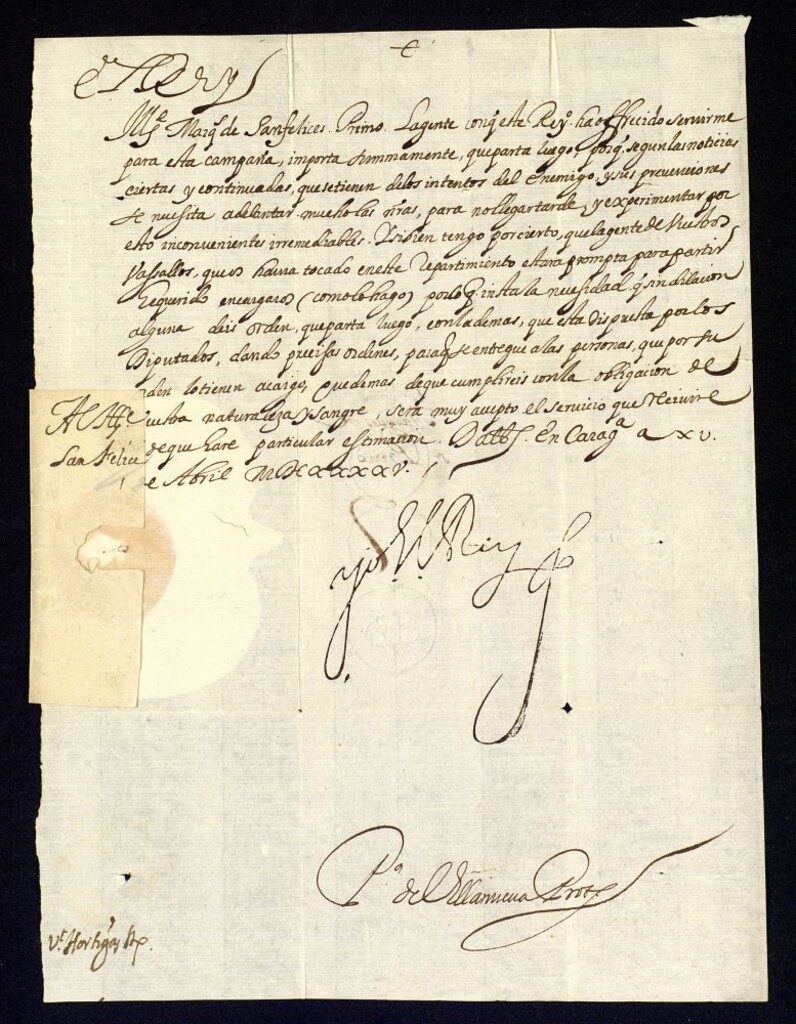 El Rey
Ille. Marq. de Sanfelices. Primo. La gente conq. este Rey.º ha offrecido seruirme
para esta campaña, importa summamente, que parta luego, porq. segun las noticias
ciertas y continuadas, que se tienen de los intentos del Enemigo, y sus preuenciones
se necesita adelantar mucho las nras, para no llegar tarde, y experimentar por
esto inconuenientes irremediables. Y si bien tengo por cierto, que la gente de Vuestros
Vassallos, que os haura tocado en este Repartimiento estara prompta para partir
he querido encargaros (como lo hago) por lo q. insta la necesidad q. sin dilacion
alguna deis orden, que parta luego, con la demas, que esta dispuesta por los
Diputados, dando precisas ordenes, para q. se entregue a las personas, que por su
orden lo tienen a cargo, que demas de que cumplireis con la obligacion de
vuestra naturaleza y sangre, sera muy acepto el seruicio que reciuire
de que hare particular estimacion. Datt. En Carag.ª a xv.
de Abril MDCxxxxv.
Al Mqe
San Felice
yo El Rey
P.º de Villanueva Prot.
Vt. Hortigas R.